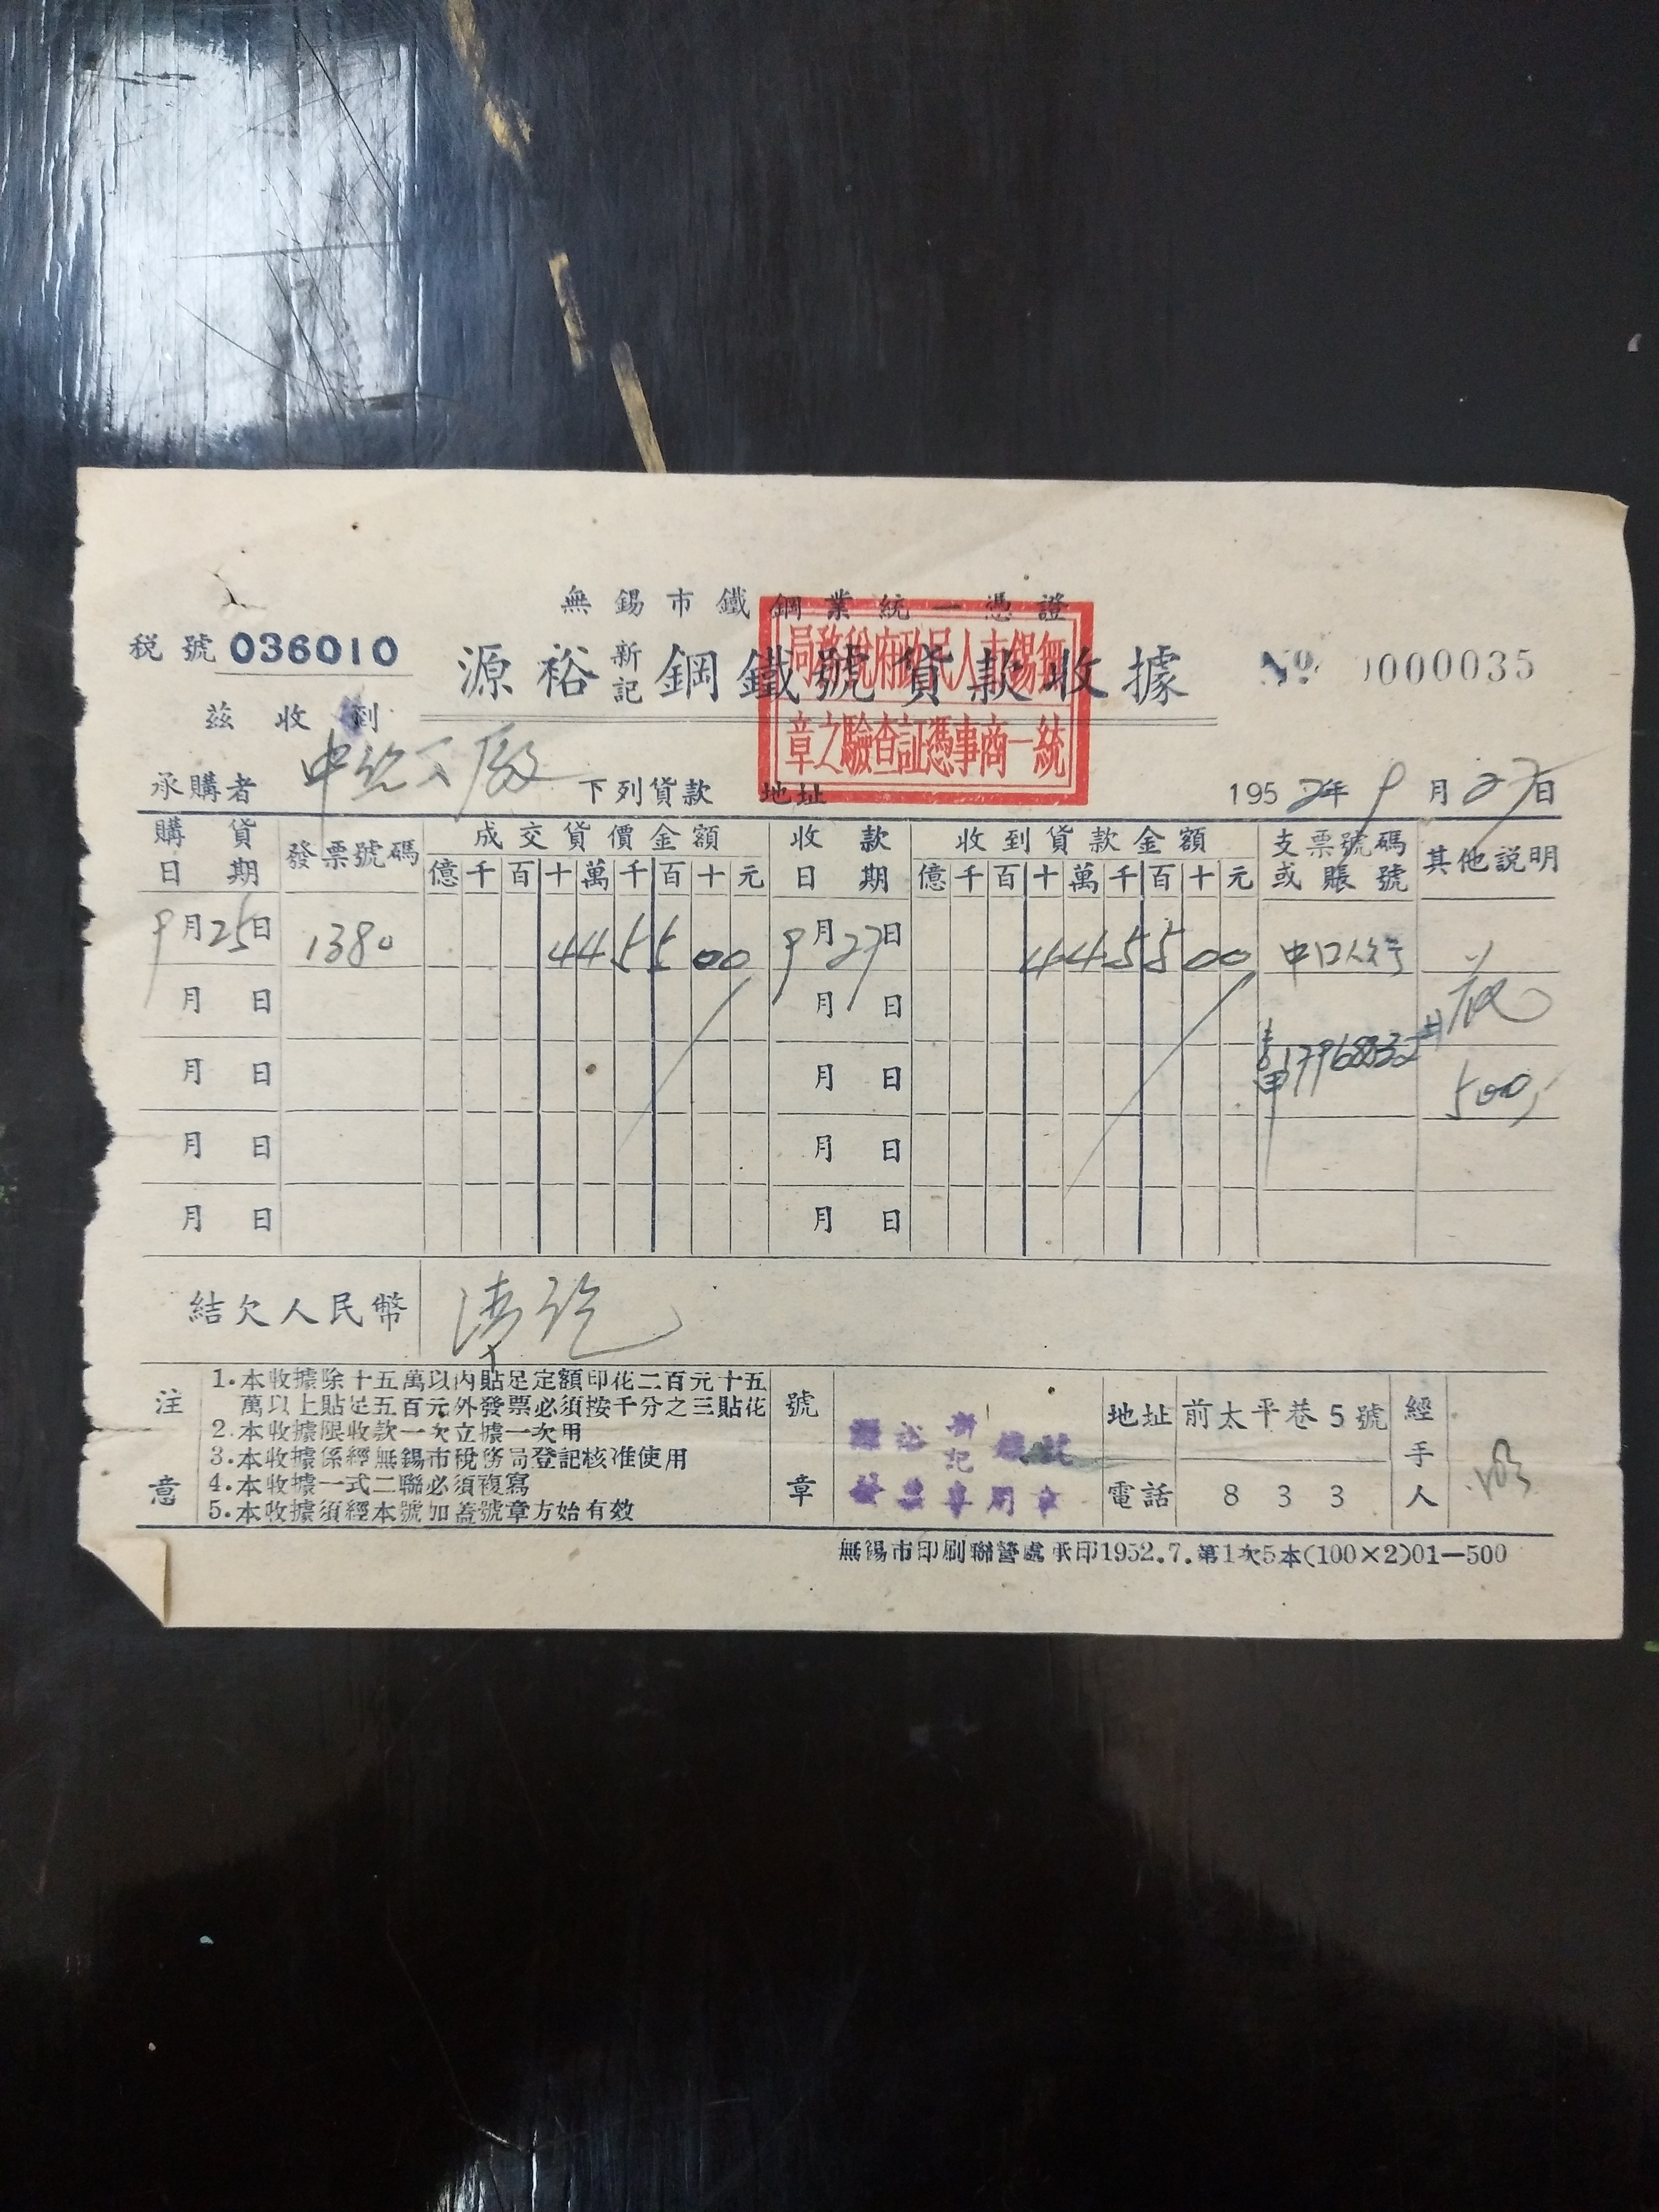 無錫市鐵鋼業統一憑證
稅號 036010
源裕新記鋼鐵號貨款收據
№ 0000035
無錫市人民政府稅務局
統一商事憑証查驗之章
茲收到
承購者 下列貨款 地址 1952年9月27日
購貨日期 發票號碼 成交貨價金額 收款日期 收到貨款金額 支票號碼或賬號 其他說明
億千百十萬千百十元 億千百十萬千百十元
9月25日 1380 445500 9月27日 445500 中口人行
月 日 月 日 花
月 日 月 日 1796832 500
月 日 月 日
月 日 月 日
結欠人民幣 清訖
注意
1.本收據除十五萬以內貼足定額印花二百元十五
萬以上貼足五百元外發票必須按千分之三貼花
2.本收據限收款一次立據一次用
3.本收據係經無錫市稅務局登記核准使用
4.本收據一式二聯必須複寫
5.本收據須經本號加蓋號章方始有效
號章
源裕新記鐵號
發票專用章
地址 前太平巷5號
電話 833
經手人
無錫市印刷聯營處承印1952.7.第1次5本(100×2)01—500